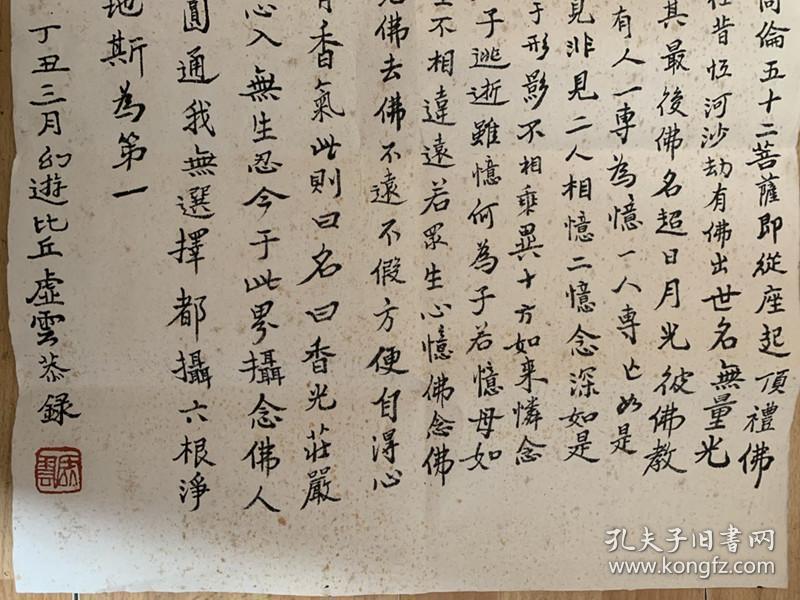 倫五十二菩薩即從座起頂禮佛
往昔恆河沙劫有佛出世名無量光
其最後佛名超日月光彼佛教
有人一專為憶一人專忘如是
見非見二人相憶二憶念深如是
于形影不相乖異十方如来憐念
子逃逝雖憶何為子若憶母如
生不相違遠若眾生心憶佛念佛
見佛去佛不遠不假方便自淂心
有香氣此則曰名曰香光莊嚴
心入無生忍今于此界攝念佛人
圓通我無選擇都攝六根淨
地斯為第一
丁丑三月幻遊比丘虛雲恭錄
孔夫子旧书网
www.kongfz.com